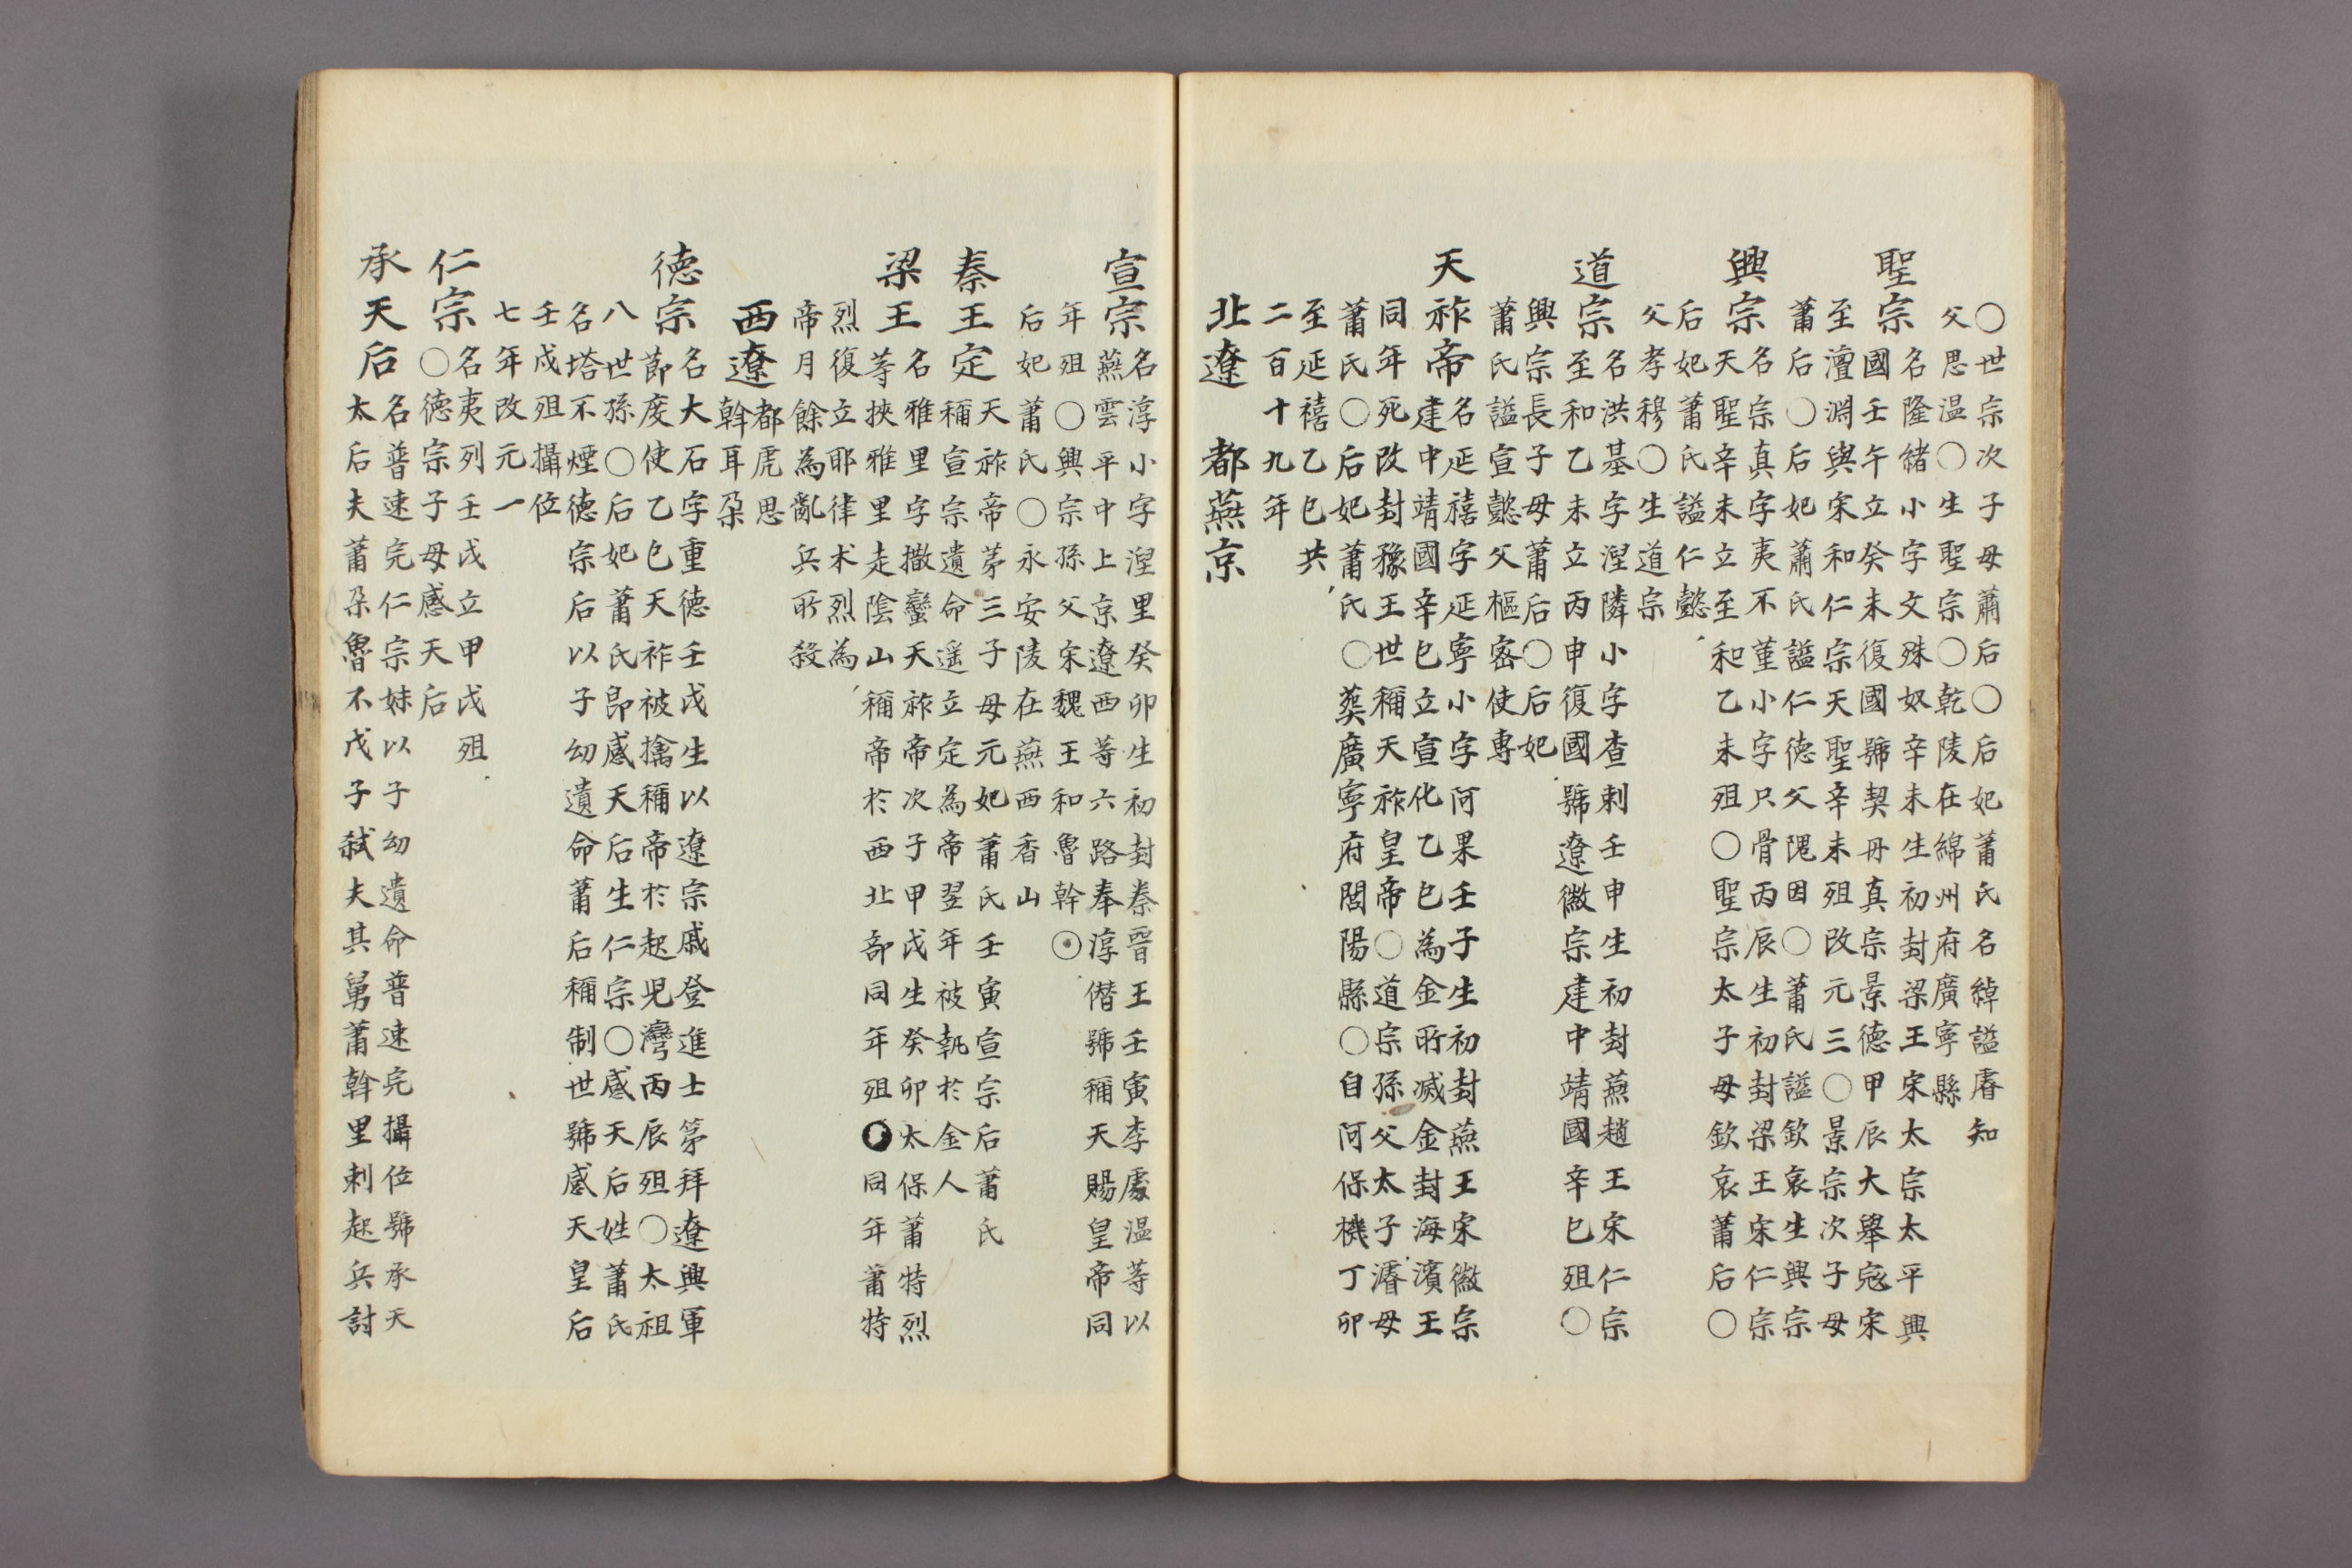 ○世宗次子母蕭后○后妃蕭氏名綽謚睿知
父思温○生聖宗○乾陵在綿州府廣寧縣
聖宗名隆緒小字文殊奴辛未生初封梁王宋太宗太平興
國壬午立癸未復國號契丹真宗景德甲辰大舉寇宋
至澶淵與宋和仁宗天聖辛未殂改元三○景宗次子母
蕭后○后妃蕭氏謚仁德父隗因○蕭氏謚欽哀生興宗
興宗名宗真字夷不菫小字只骨丙辰生初封梁王宋仁宗
天聖辛未立至和乙未殂○聖宗太子母欽哀蕭后○
后妃蕭氏謚仁懿
父孝穆○生道宗
道宗名洪基字涅隣小字查剌壬申生初封燕趙王宋仁宗
至和乙未立丙申復國號遼徽宗建中靖國辛巳殂○
興宗長子母蕭后○后妃
蕭氏謚宣懿父樞密使專
天祚帝名延禧字延寧小字阿果壬子生初封燕王宋徽宗
建中靖國辛巳立宣化乙巳為金所滅金封海濱王
同年死改封豫王世稱天祚皇帝○道宗孫父太子濬母
蕭氏○后妃蕭氏○葬廣寧府閭陽縣○自阿保機丁卯
至延禧乙巳共
二百十九年
北遼 都燕京
宣宗名淳小字涅里癸卯生初封秦晋王壬寅李處温等以
燕雲平中上京遼西等六路奉淳僭號稱天賜皇帝同
年殂○興宗孫父宋魏王和魯斡⊙
后妃蕭氏○永安陵在燕西香山
秦王定天祚帝苐三子母元妃蕭氏壬寅宣宗后蕭氏
稱宣宗遺命遥立定為帝翌年被執於金人
梁王名雅里字撒鸞天祚帝次子甲戌生癸卯太保蕭特烈
等挾雅里走陰山稱帝於西北部同年殂●同年蕭特
烈復立耶律术烈為
帝月餘為亂兵所殺
西遼都虎思
斡耳朶
德宗名大石字重德壬戌生以遼宗戚登進士苐拜遼興軍
節度使乙巳天祚被擒稱帝於起児灣丙辰殂○太祖
八世孫○后妃蕭氏即感天后生仁宗○感天后姓蕭氏
名塔不煙德宗后以子幼遺命蕭后稱制世號感天皇后
壬戌殂攝位
七年改元一
仁宗名夷列壬戌立甲戌殂
○德宗子母感天后
承天后名普速完仁宗妹以子幼遺命普速完攝位號承天
太后夫蕭朶魯不戊子弑夫其舅蕭斡里剌起兵討